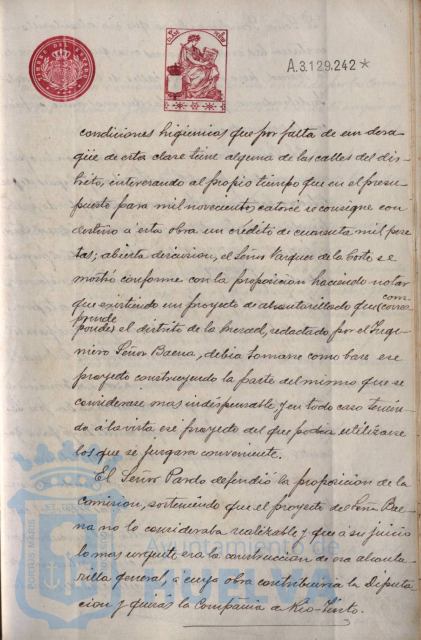 TIMBRE DEL ESTADO
A.3.129.242*
condiciones higienicas que por falta de un desa-
güe de esta clase tiene alguna de las calles del dis-
trito, interesando al propio tiempo que en el presu-
puesto para mil novecientos catorce se consigne con
destino á esta obra un crédito de cuarenta mil pese-
tas; abierta discusion, el Señor Vazquez de la Corte se
mostró conforme con la proposicion haciendo notar
que existiendo un proyecto de alcantarillado que com
prende
ponde el distrito de la Merced, redactado por el Inge-
niero Señor Baena, debia tomarse como base ese
proyecto construyendo la parte del mismo que se
considerase mas indispensable, y en todo caso tenien-
do á la vista ese proyecto del que podia utilizarse
los que se juzgara conveniente.
El Señor Pardo defendió la proposicion de la
comision, sosteniendo que el proyecto del Señor Bae-
na no lo consideraba realizable y que á su juicio
lo mas urgente era la construccion de esa alcanta-
rilla general, á cuya obra contribuiria la Diputa-
cion y quizás la Compañia de Rio-Tinto.
Ayuntamiento de
HUELVA
PORTUS MARIS